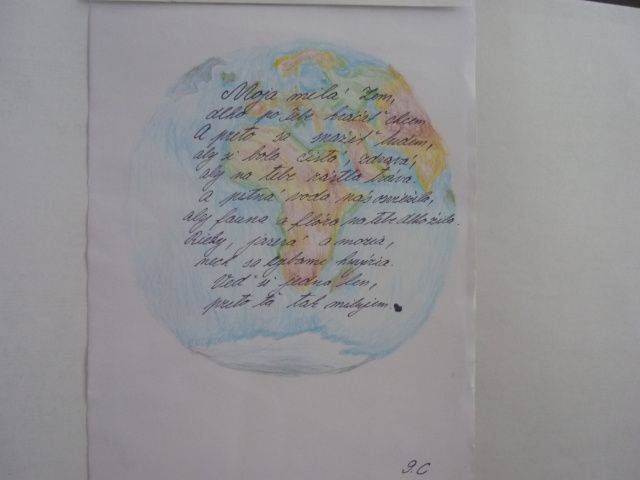 Moja milá Zem,
dlho po tebe kráčať chcem.
A preto sa snažiť budem,
aby si bola čistá, zdravá,
aby na tebe rástla tráva.
A pitná voda nás osviežila,
aby fauna a flóra na tebe dlho žila.
Rieky, jazerá a moria,
nech sa rybami hmýria.
Veď si jedna len,
preto ťa tak milujem.
9.C